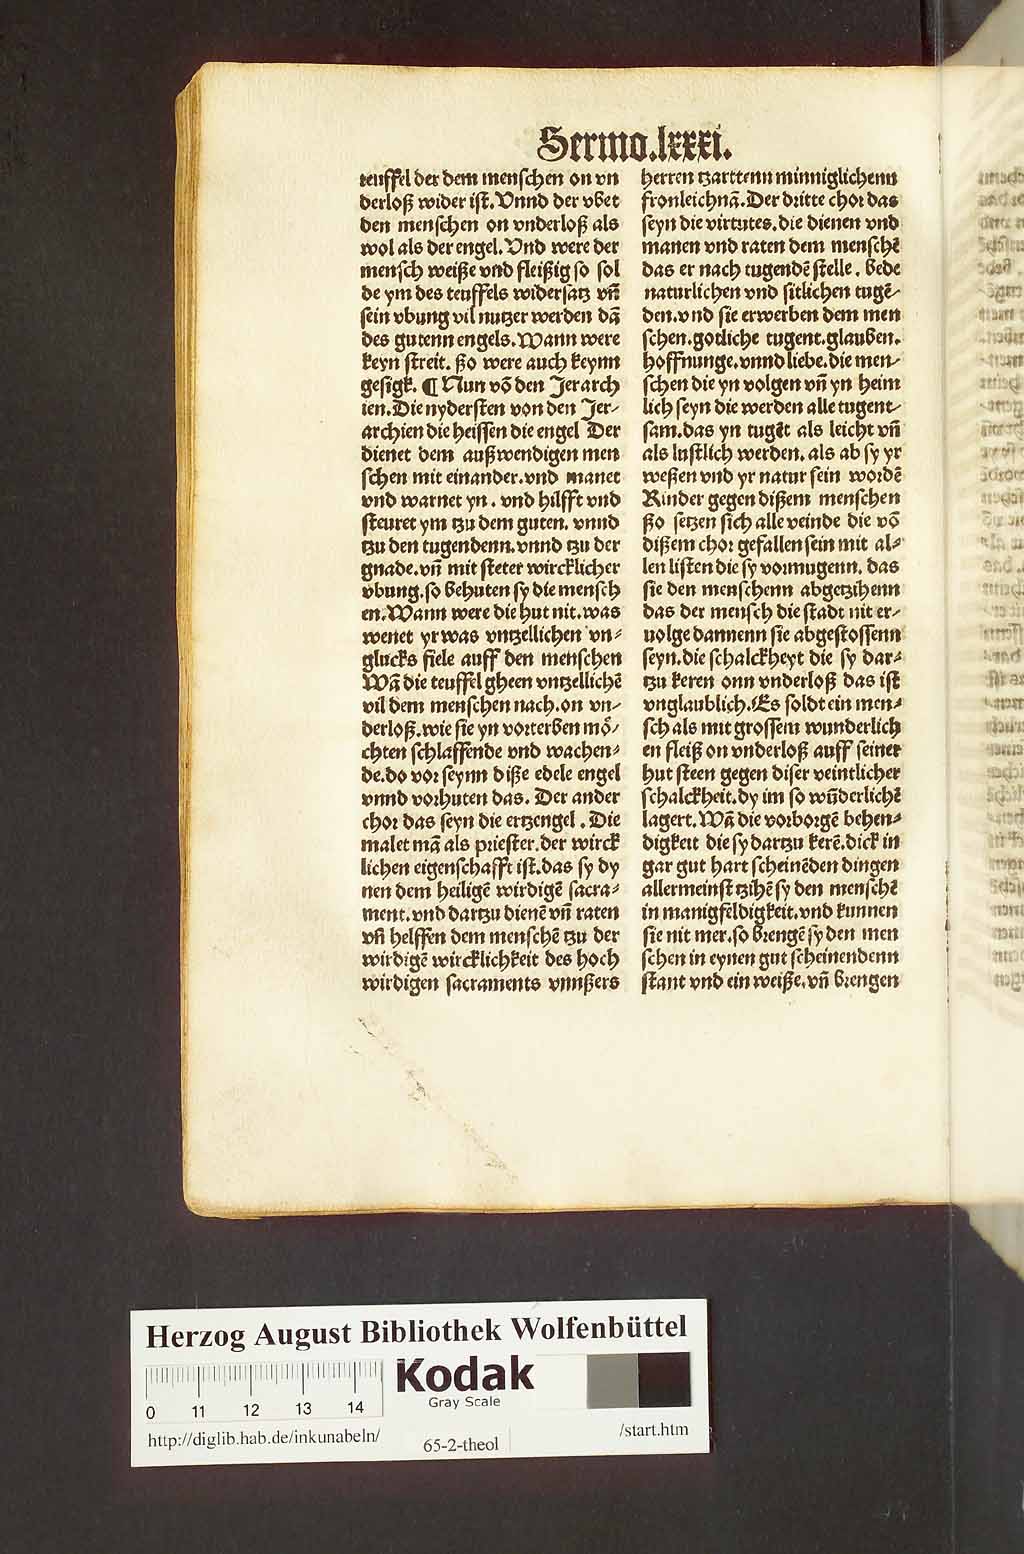 Sermo.lxxxi.
teuffel der dem menschen on vn
derloß wider ist. Vnnd der vbet
den menschen on vnderloß als
wol als der engel. Vnd were der
mensch weiße vnd fleißig so sol
de ym des teuffels widersatz vn̄
sein vbung vil nutzer werden dā
des gutenn engels. Wann were
keyn streit. ßo were auch keynn
gesigk. ¶ Nun vō den Jerarch
ien. Die nydersten von den Jer⸗
archien die heissen die engel Der
dienet dem außwendigen men
schen mit einander. vnd manet
vnd warnet yn. vnd hilfft vnd
steuret ym tzu dem guten. vnnd
tzu den tugendenn. vnnd tzu der
gnade. vn̄ mit steter wircklicher
vbung. so behuten sy die mensch
en. Wann were die hut nit. was
wenet yr was vntzellichen vn⸗
glucks fiele auff den menschen
Wā die teuffel gheen vntzellichē
vil dem menschen nach. on vn⸗
derloß. wie sie yn vorterben mö⸗
chten schlaffende vnd wachen⸗
de. do vor seynn diße edele engel
vnnd vorhuten das. Der ander
chor das seyn die ertzengel. Die
malet mā als priester. der wirck
lichen eigenschafft ist. das sy dy
nen dem heiligē wirdigē sacra⸗
ment. vnd dartzu dienē vn̄ raten
vn̄ helffen dem menschē tzu der
wirdigē wircklichkeit des hoch
wirdigen sacraments vnnßers
herren tzarttenn minniglichenn
fronleichnā. Der dritte chor das
seyn die virtutes. die dienen vnd
manen vnd raten dem menschē
das er nach tugendē stelle. bede
naturlichen vnd sitlichen tugē⸗
den. vnd sie erwerben dem men
schen. gotliche tugent. glauben.
hoffnunge. vnnd liebe. die men⸗
schen die yn volgen vn̄ yn heim
lich seyn die werden alle tugent⸗
sam. das yn tugēt als leicht vn̄
als lustlich werden. als ab sy yr
weßen vnd yr natur sein wordē
Rinder gegen dißem menschen
ßo setzen sich alle veinde die vō
dißem chor gefallen sein mit al⸗
len listen die sy vormugenn. das
sie den menschenn abgetzihenn
das der mensch die stadt nit er⸗
uolge dannenn sie abgestossenn
seyn. die schalckheyt die sy dar⸗
tzu keren onn vnderloß das ist
vnglaublich. Es soldt ein men⸗
sch als mit grossem wunderlich
en fleiß on vnderloß auff seiner
hut steen gegen diser veintlicher
schalckheit. dy im so wūderlichē
lagert. Wā die vorborgē behen⸗
digkeit die sy dartzu kerē. dick in
gar gut hart scheinēden dingen
allermeinst tzihē sy den menschē
in manigfeldigkeit. vnd kunnen
sie nit mer. so brengē sy den men
schen in eynen gut scheinendenn
stant vnd ein weiße. vn̄ brengen
Herzog August Bibliothek Wolfenbüttel
Kodak
Gray Scale
0 11 12 13 14
http://diglib.hab.de/inkunabeln/
65-2-theol
/start.htm